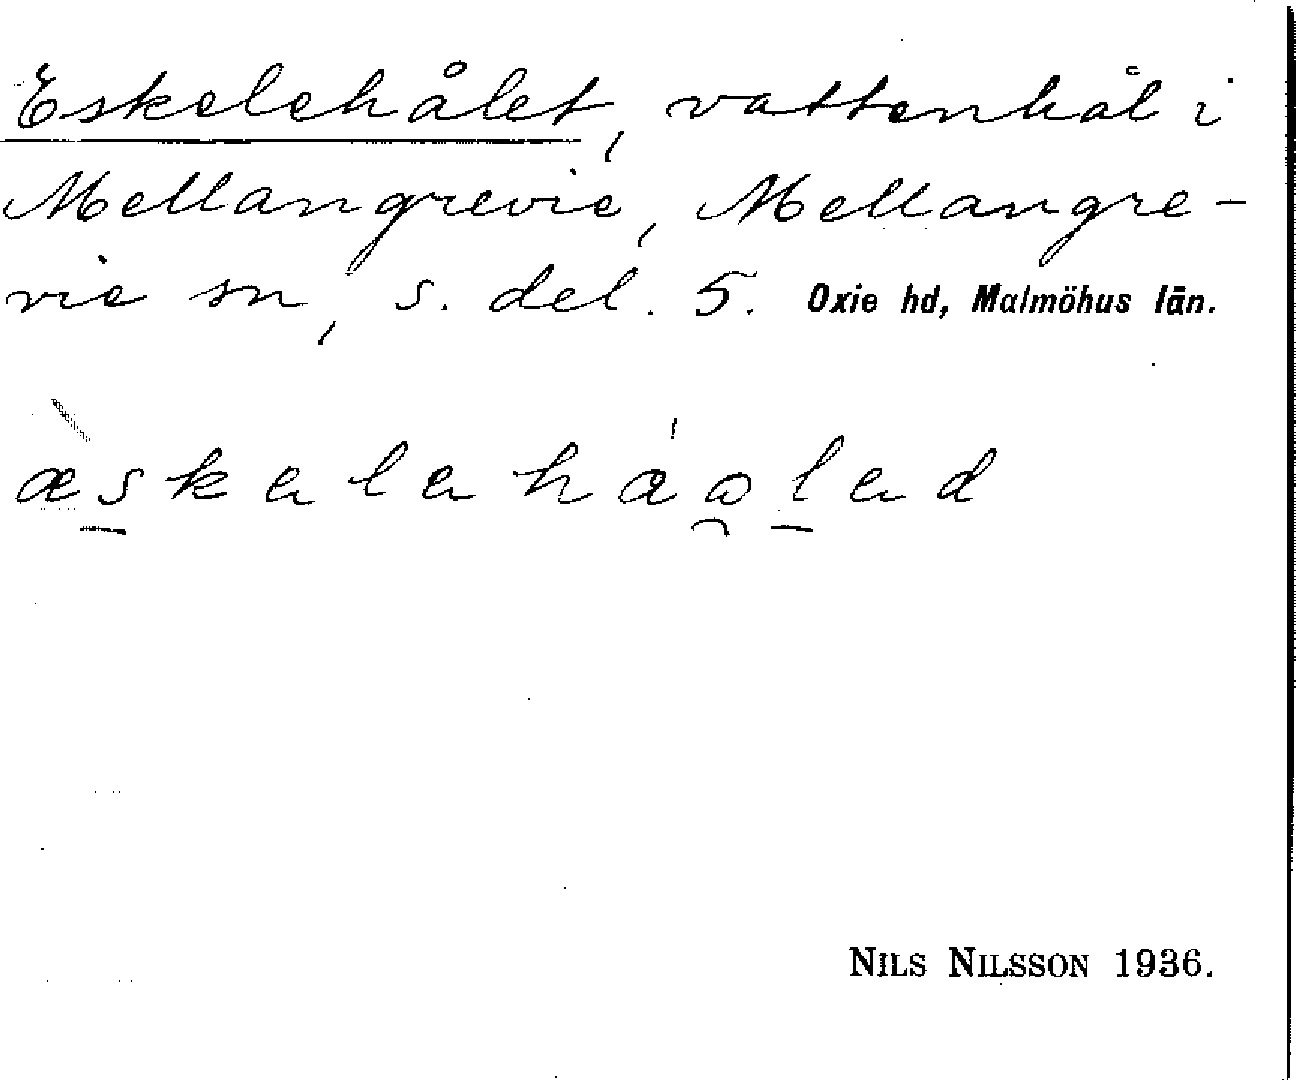 Eskelehålet, vattenhål i
Mellangrevie, Mellangre-
vie sn, s. del. 5. Oxie hd, Malmöhus län.
æskalaháolad
NILS NILSSON 1936.